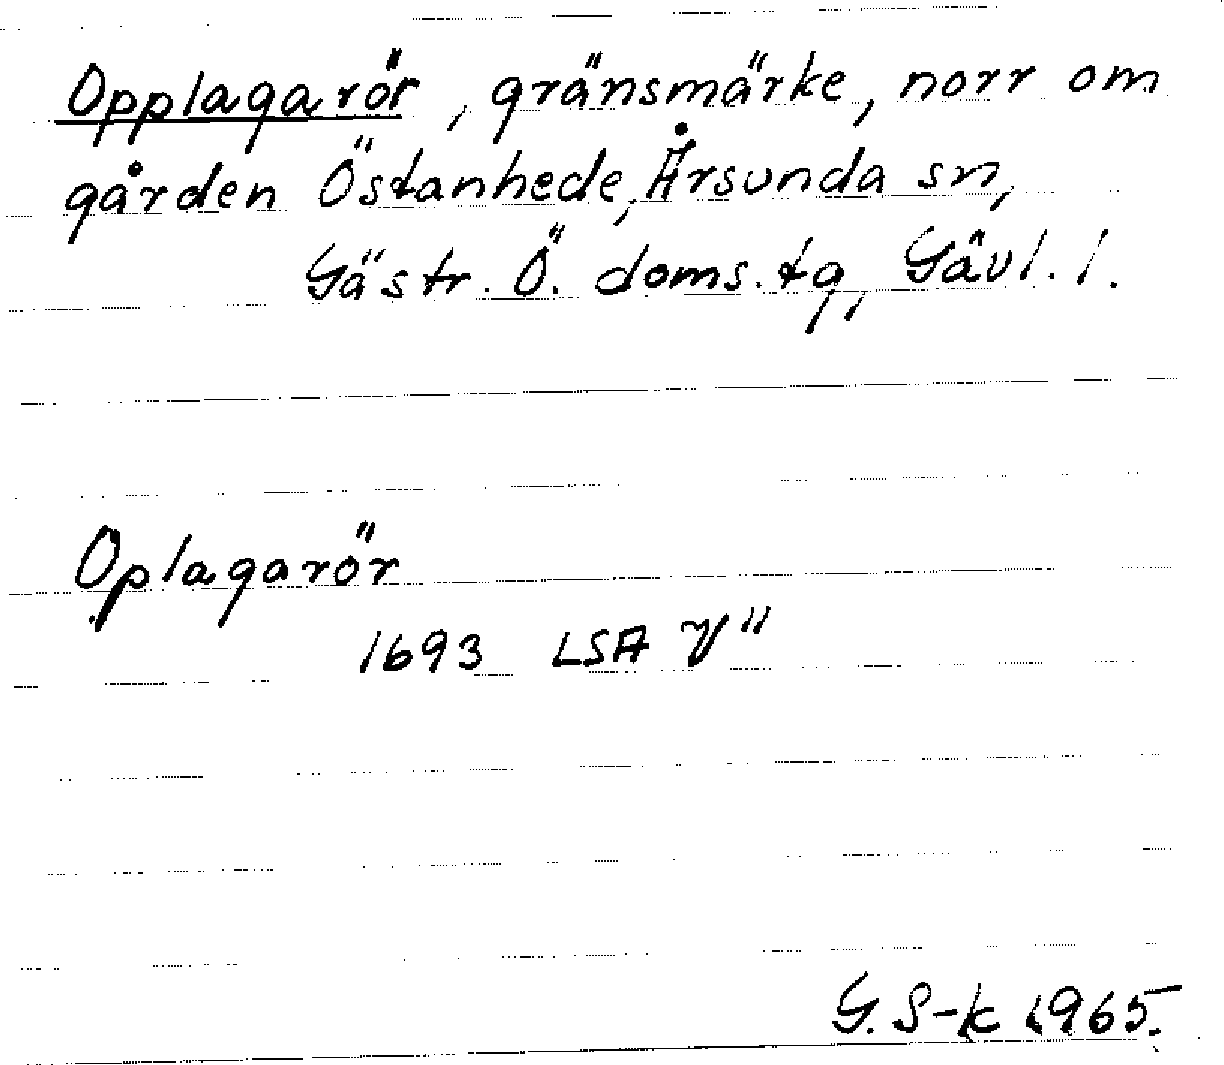 Opplagarör, gränsmärke, norr om
gården Östanhede, Årsunda sn,
Gästr. Ö. doms.tg, Gävl. l.
Oplagarör
1693 LSA V¹¹
G. S-k 1965.